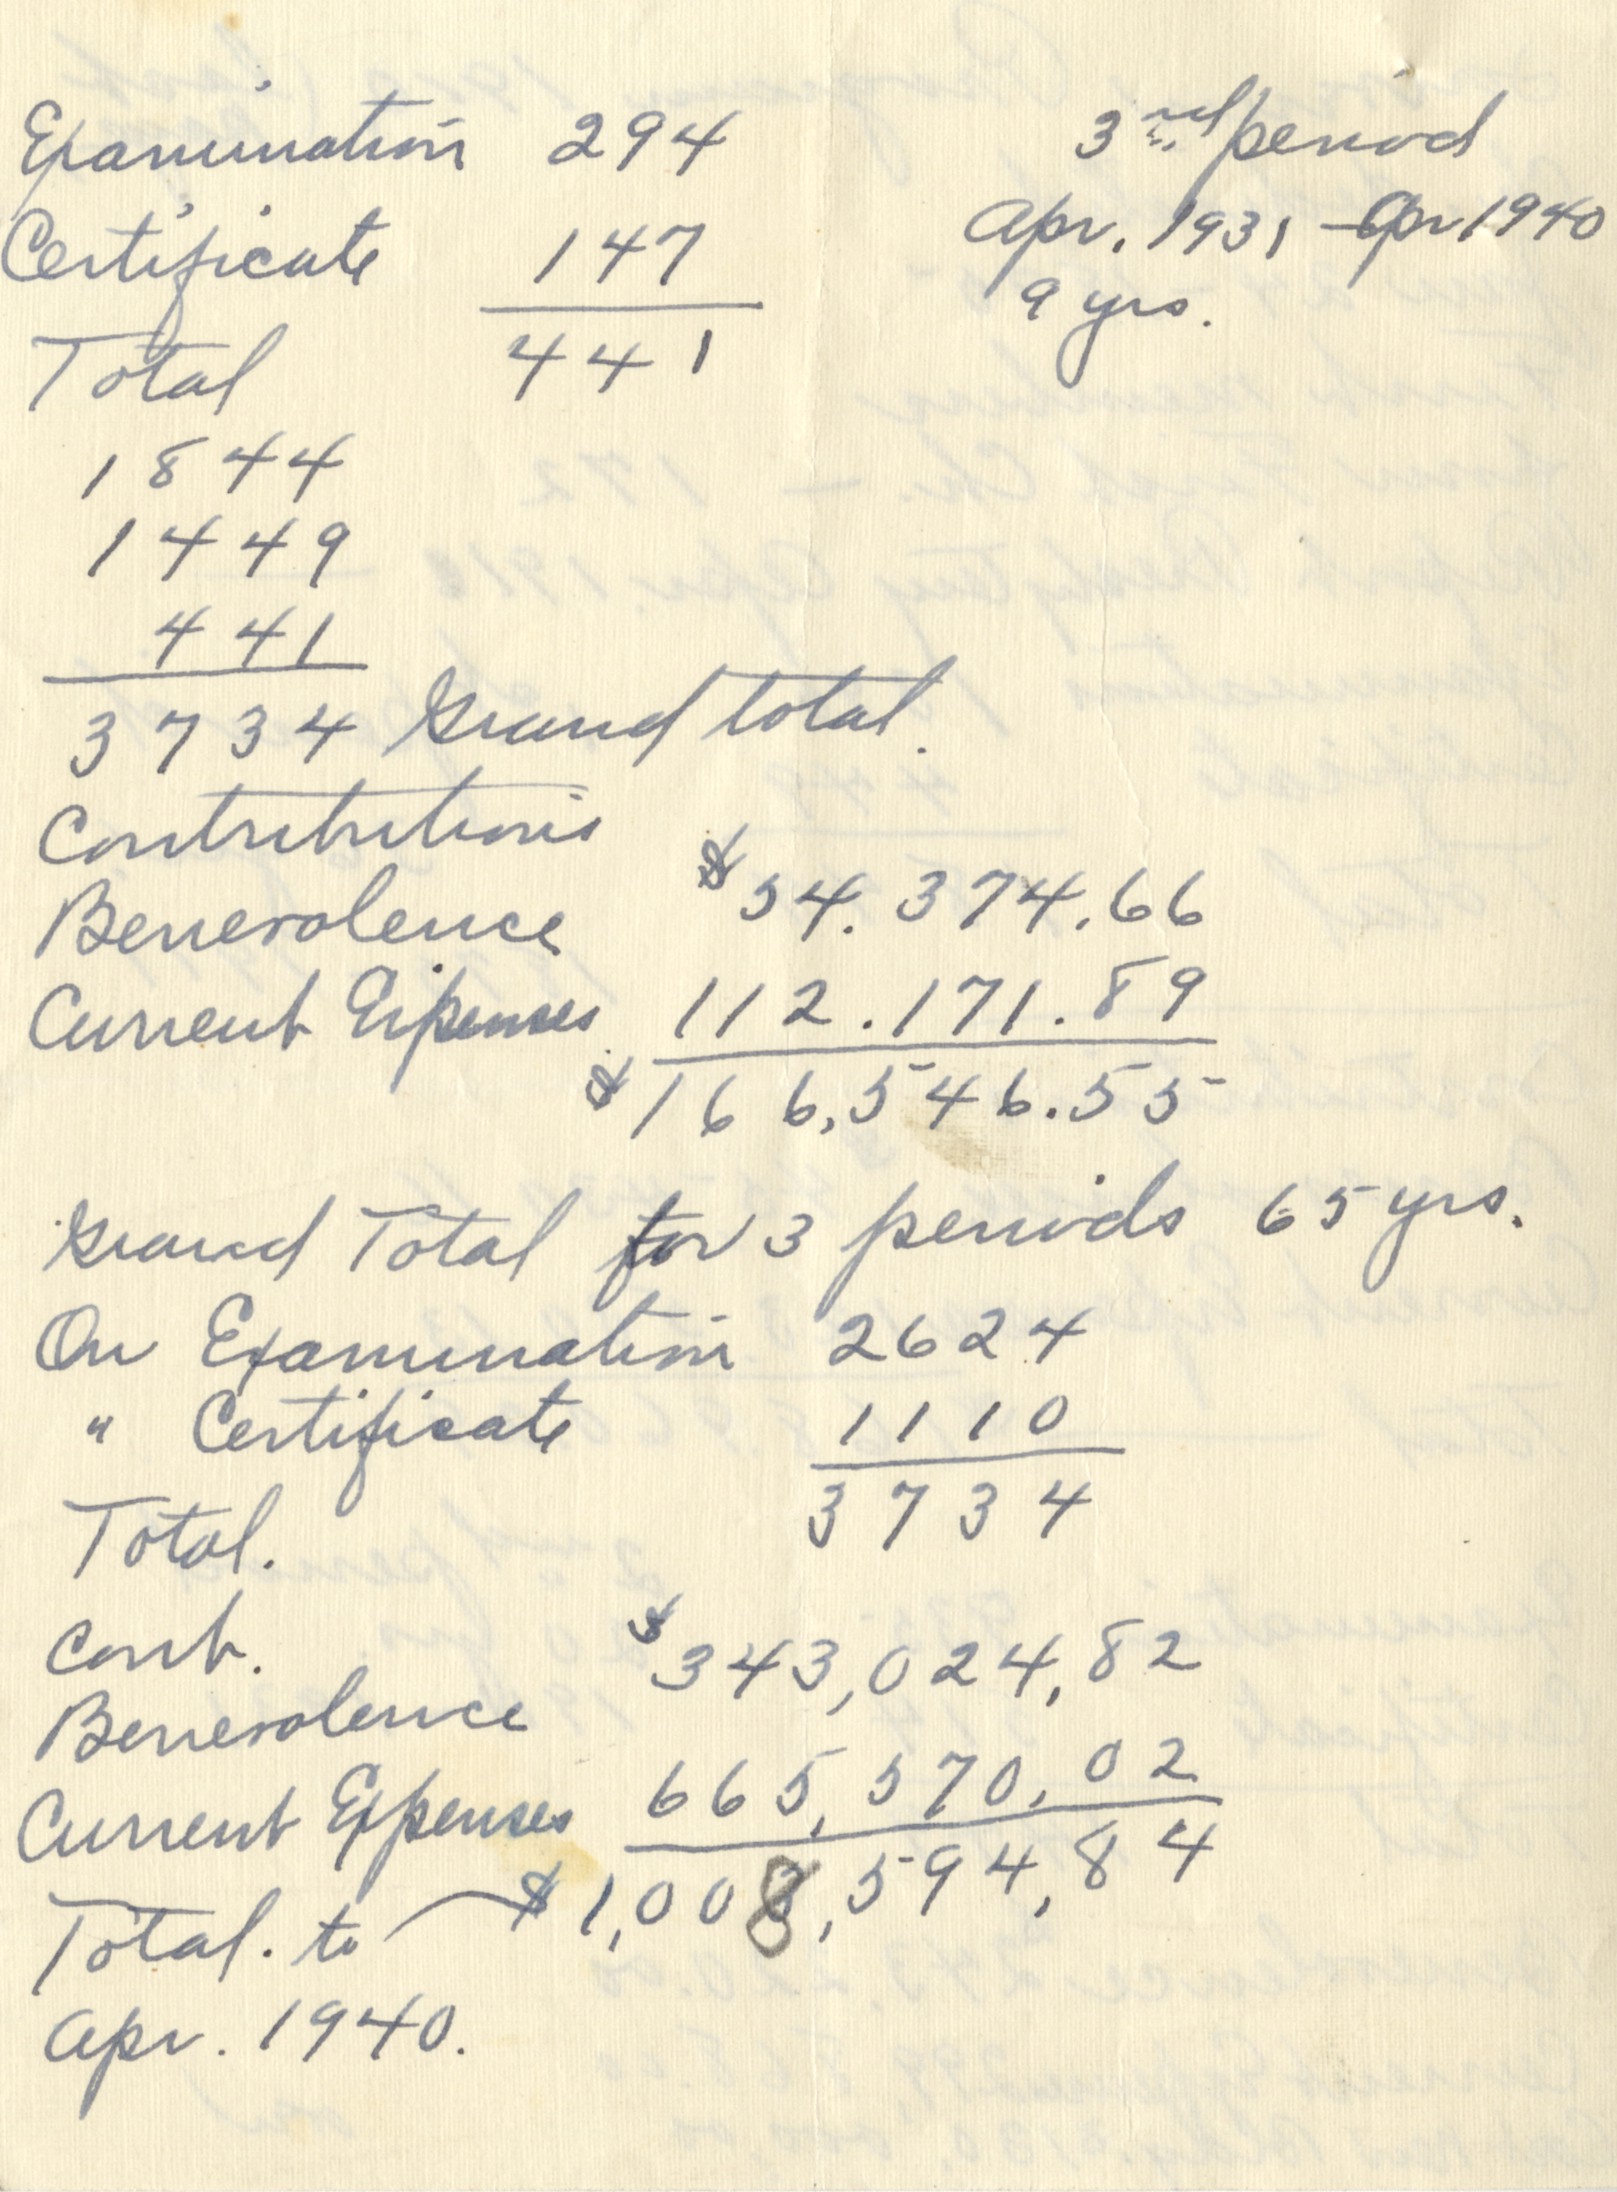 Examination 294
3rd period
Certificate 147
Apr. 1931 - Apr 1940
9 yrs.
Total 441
1844
1449
441
3734 Grand total.
Contributions
Benevolence $54.374.66
Current Expenses 112.171.89
$166,546.55
Grand Total for 3 periods 65 yrs.
On Examination 2624
" Certificate 1110
Total. 3734
Cont.
Benevolence $343,024,82
Current Expenses 665,570.02
Total. to $1,008,594,84
Apr. 1940.